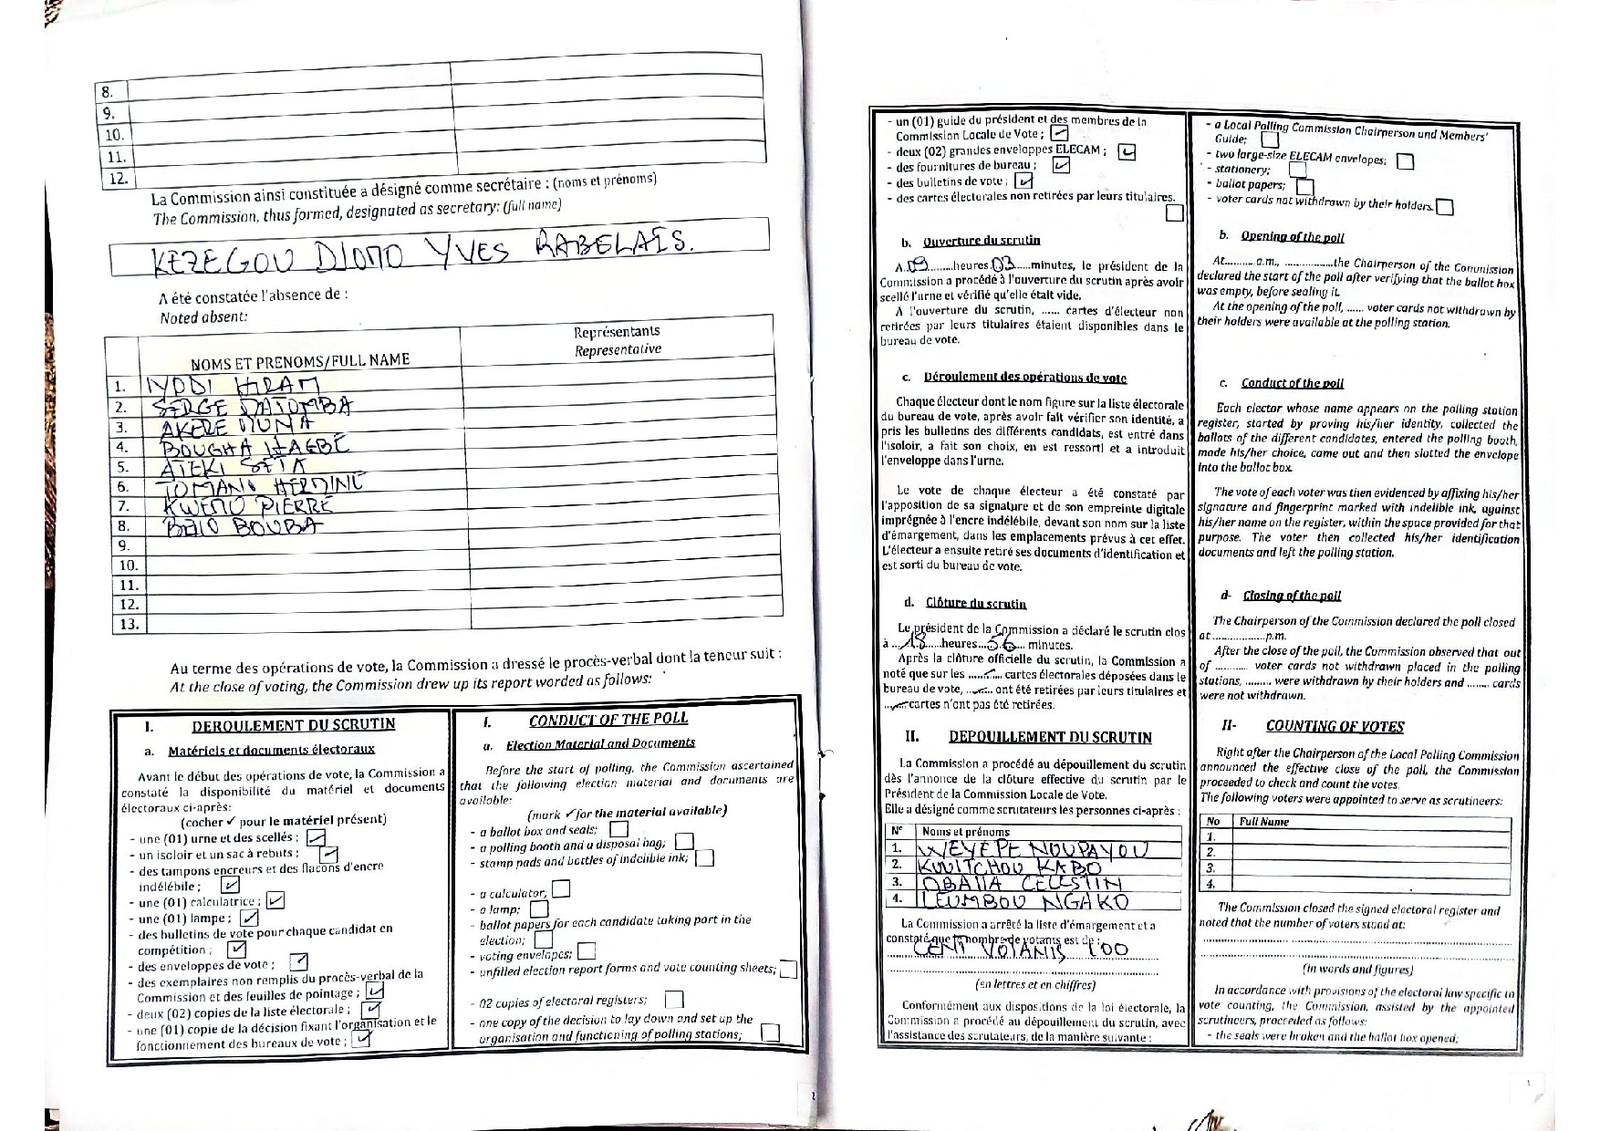 8.
9.
10.
11.
12.
La Commission ainsi constituée a désigné comme secrétaire : (noms et prénoms)
The Commission, thus formed, designated as secretary: (full name)
KEZEGOU DJOMO YVES RABELAIS.
A été constatée l'absence de :
Noted absent:
NOMS ET PRENOMS/FULL NAME
Représentants
Representative
1. IYODI HIRAM
2. SERGE MATOMBA
3. AKERE MUNA
4. BOUGHA HAGBE
5. ATEKI SETA
6. TOMANO HERDINE
7. KWEMO PIERRE
8. BELLO BOUBA
9.
10.
11.
12.
13.
Au terme des opérations de vote, la Commission a dressé le procès-verbal dont la teneur suit :
At the close of voting, the Commission drew up its report worded as follows:
I. DEROULEMENT DU SCRUTIN
a. Matériels et documents électoraux
Avant le début des opérations de vote, la Commission a
constaté la disponibilité du matériel et documents
électoraux ci-après:
(cocher ✓ pour le matériel présent)
- une (01) urne et des scellés ; ✓
- un isoloir et un sac à rebuts ; ✓
- des tampons encreurs et des flacons d'encre
indélébile ; ✓
- une (01) calculatrice ; ✓
- une (01) lampe ; ✓
- des bulletins de vote pour chaque candidat en
compétition ; ✓
- des enveloppes de vote ; ✓
- des exemplaires non remplis du procès-verbal de la
Commission et des feuilles de pointage ; ✓
- deux (02) copies de la liste électorale ; ✓
- une (01) copie de la décision fixant l'organisation et le
fonctionnement des bureaux de vote ; ✓
I. CONDUCT OF THE POLL
a. Election Material and Documents
Before the start of polling, the Commission ascertained
that the following election material and documents are
available:
(mark ✓ for the material available)
- a ballot box and seals;
- a polling booth and a disposal bag;
- stamp pads and bottles of indelible ink;
- a calculator;
- a lamp;
- ballot papers for each candidate taking part in the
election;
- voting envelopes;
- unfilled election report forms and vote counting sheets;
- 02 copies of electoral registers;
- one copy of the decision to lay down and set up the
organisation and functioning of polling stations;
- un (01) guide du président et des membres de la
Commission Locale de Vote ; ✓
- deux (02) grandes enveloppes ELECAM ; ✓
- des fournitures de bureau ; ✓
- des bulletins de vote ; ✓
- des cartes électorales non retirées par leurs titulaires.
b. Ouverture du scrutin
A 09 heures 03 minutes, le président de la
Commission a procédé à l'ouverture du scrutin après avoir
scellé l'urne et vérifié qu'elle était vide.
A l'ouverture du scrutin, ...... cartes d'électeur non
retirées par leurs titulaires étaient disponibles dans le
bureau de vote.
c. Déroulement des opérations de vote
Chaque électeur dont le nom figure sur la liste électorale
du bureau de vote, après avoir fait vérifier son identité, a
pris les bulletins des différents candidats, est entré dans
l'isoloir, a fait son choix, en est ressorti et a introduit
l'enveloppe dans l'urne.
Le vote de chaque électeur a été constaté par
l'apposition de sa signature et de son empreinte digitale
imprégnée à l'encre indélébile, devant son nom sur la liste
d'émargement, dans les emplacements prévus à cet effet.
L'électeur a ensuite retiré ses documents d'identification et
est sorti du bureau de vote.
d. Clôture du scrutin
Le président de la Commission a déclaré le scrutin clos
à 18 heures 56 minutes.
Après la clôture officielle du scrutin, la Commission a
noté que sur les ......... cartes électorales déposées dans le
bureau de vote, ...... ont été retirées par leurs titulaires et
...... cartes n'ont pas été retirées.
II. DEPOUILLEMENT DU SCRUTIN
La Commission a procédé au dépouillement du scrutin
dès l'annonce de la clôture effective du scrutin par le
Président de la Commission Locale de Vote.
Elle a désigné comme scrutateurs les personnes ci-après :
N° Noms et prénoms
1. WEYEPE NOUPAYOU
2. KUUITCHOU KABO
3. OBAMA CELESTIN
4. LEUMBOU NGAKO
La Commission a arrêté la liste d'émargement et a
constaté que le nombre de votants est de :
CENT VOTANTS 100
(en lettres et en chiffres)
Conformément aux dispositions de la loi électorale, la
Commission a procédé au dépouillement du scrutin, avec
l'assistance des scrutateurs, de la manière suivante :
- a Local Polling Commission Chairperson and Members'
Guide;
- two large-size ELECAM envelopes;
- stationery;
- ballot papers;
- voter cards not withdrawn by their holders.
b. Opening of the poll
At..........a.m., ................the Chairperson of the Commission
declared the start of the poll after verifying that the ballot box
was empty, before sealing it.
At the opening of the poll, ...... voter cards not withdrawn by
their holders were available at the polling station.
c. Conduct of the poll
Each elector whose name appears on the polling station
register, started by proving his/her identity, collected the
ballots of the different candidates, entered the polling booth,
made his/her choice, came out and then slotted the envelope
into the ballot box.
The vote of each voter was then evidenced by affixing his/her
signature and fingerprint marked with indelible ink, against
his/her name on the register, within the space provided for that
purpose. The voter then collected his/her identification
documents and left the polling station.
d- Closing of the poll
The Chairperson of the Commission declared the poll closed
at..................p.m.
After the close of the poll, the Commission observed that out
of .......... voter cards not withdrawn placed in the polling
stations, ......... were withdrawn by their holders and ....... cards
were not withdrawn.
II- COUNTING OF VOTES
Right after the Chairperson of the Local Polling Commission
announced the effective close of the poll, the Commission
proceeded to check and count the votes.
The following voters were appointed to serve as scrutineers:
No Full Name
1.
2.
3.
4.
The Commission closed the signed electoral register and
noted that the number of voters stood at:
(in words and figures)
In accordance with provisions of the electoral law specific to
vote counting, the Commission, assisted by the appointed
scrutineers, proceeded as follows:
- the seals were broken and the ballot box opened;